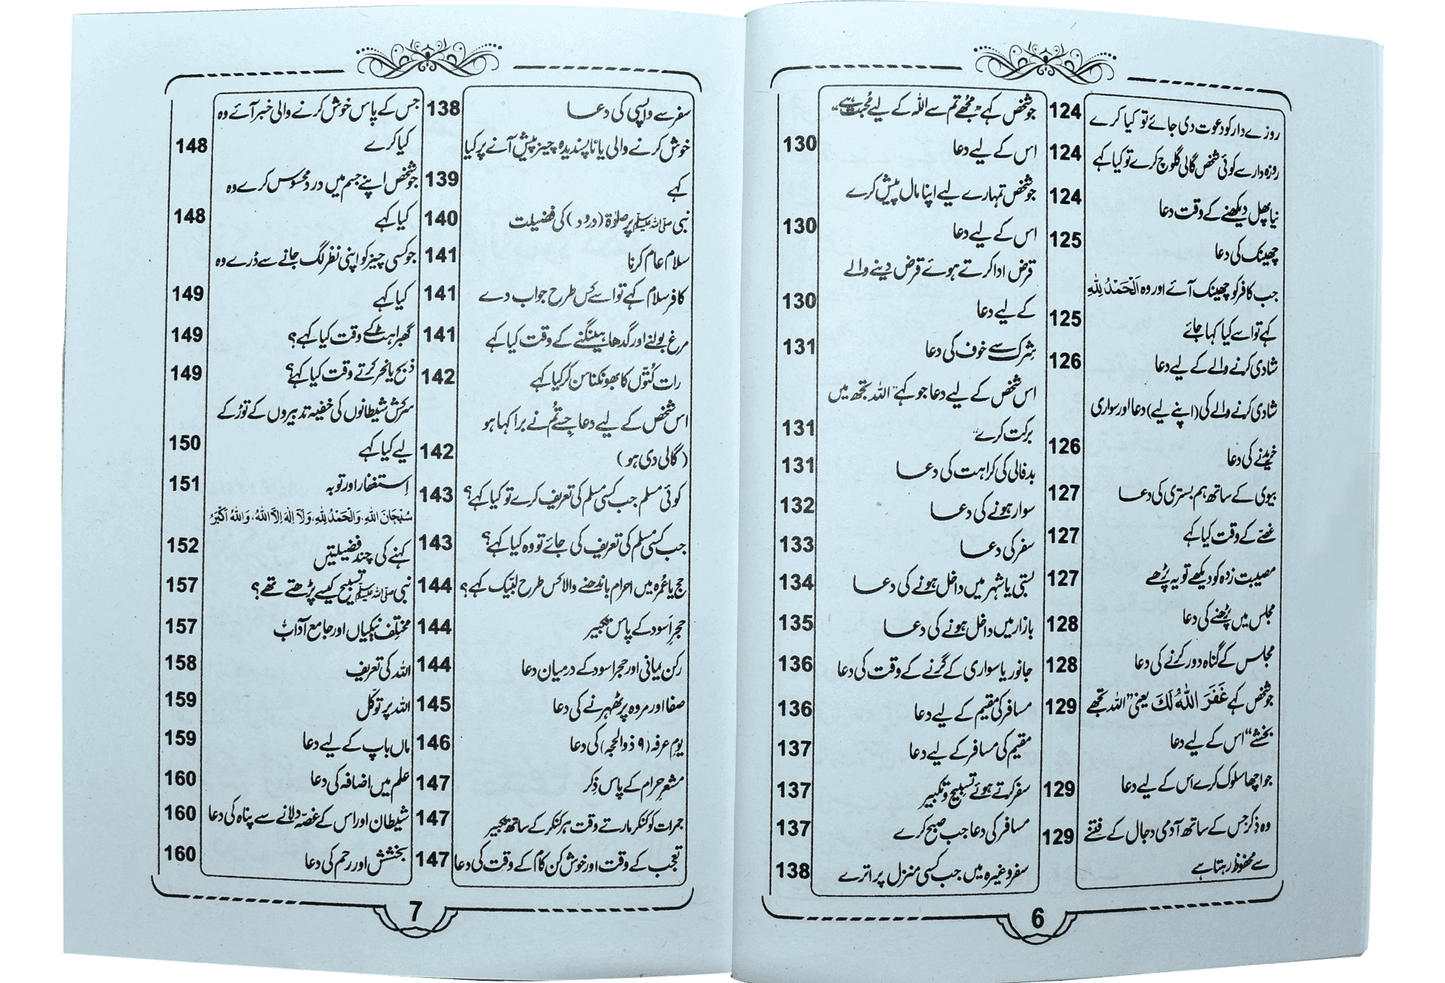 روزے دار کو دعوت دی جائے تو کیا کرے 124
روزہ دار سے کوئی شخص گالی گلوچ کرے تو کیا کہے 124
نیا پھل دیکھنے کے وقت دعا 124
چھینک کی دعا 125
جب کافر کو چھینک آئے اور وہ اَلْحَمْدُ لِلّٰہِ
کہے تو اسے کیا کہا جائے 125
شادی کرنے والے کے لیے دعا 126
شادی کرنے والے کی (اپنے لیے) دعا اور سواری
خریدنے کی دعا 126
بیوی کے ساتھ ہم بستری کی دعا 127
غصّے کے وقت کیا کہے 127
مصیبت زدہ کو دیکھے تو یہ پڑھے 127
مجلس میں پڑھنے کی دعا 128
مجلس کے گناہ دور کرنے کی دعا 128
جو شخص کہے غَفَرَ اللّٰہُ لَکَ یعنی ”اللہ تجھے 129
بخشے“ اس کے لیے دعا
جو اچھا سلوک کرے اس کے لیے دعا 129
وہ ذکر جس کے ساتھ آدمی دجال کے فتنے 129
سے محفوظ رہتا ہے
جو شخص کہے ”مجھے تم سے اللہ کے لیے محبت ہے“
اس کے لیے دعا 130
جو شخص تمہارے لیے اپنا مال پیش کرے
اس کے لیے دعا 130
قرض ادا کرتے ہوئے قرض دینے والے
کے لیے دعا 130
شرک سے خوف کی دعا 131
اس شخص کے لیے دعا جو کہے ”اللہ تجھ میں
برکت کرے“ 131
بدفالی کی کراہت کی دعا 131
سوار ہونے کی دعا 132
سفر کی دعا 133
بستی یا شہر میں داخل ہونے کی دعا 134
بازار میں داخل ہونے کی دعا 135
جانور یا سواری کے گرنے کے وقت کی دعا 136
مسافر کی مقیم کے لیے دعا 136
مقیم کی مسافر کے لیے دعا 137
سفر کرتے ہوئے تسبیح و تکبیر 137
مسافر کی دعا جب صبح کرے 137
سفر وغیرہ میں جب کسی منزل پر اترے 138
6
سفر سے واپسی کی دعا 138
خوش کرنے والی یا ناپسندیدہ چیز پیش آنے پر کیا
کہے 139
نبی ﷺ پر صلوٰۃ (درود) کی فضیلت 140
سلام عام کرنا 141
کافر سلام کہے تو اسے کس طرح جواب دے 141
مرغ بولنے اور گدھا ہینگنے کے وقت کیا کہے 141
رات کتّوں کا بھونکنا سن کر کیا کہے 142
اس شخص کے لیے دعا جسے تم نے برا کہا ہو
(گالی دی ہو) 142
کوئی مسلم جب کسی مسلم کی تعریف کرے تو کیا کہے؟ 143
جب کسی مسلم کی تعریف کی جائے تو وہ کیا کہے؟ 143
حج یا عمرہ میں احرام باندھنے والا کس طرح لبّیک کہے؟ 144
حجر اسود کے پاس تکبیر 144
رکن یمانی اور حجر اسود کے درمیان دعا 144
صفا اور مروہ پر ٹھہرنے کی دعا 145
یوم عرفہ (۹ ذوالحجہ) کی دعا 146
مشعر حرام کے پاس ذکر 147
جمرات کو کنکر مارتے وقت ہر کنکر کے ساتھ تکبیر 147
تعجب کے وقت اور خوش کن کام کے وقت کی دعا 147
جس کے پاس خوش کرنے والی خبر آئے وہ
کیا کرے 148
جو شخص اپنے جسم میں درد محسوس کرے وہ
کیا کہے 148
جو کسی چیز کو اپنی نظر لگ جانے سے ڈرے وہ
کیا کہے 149
گھبراہٹ کے وقت کیا کہے؟ 149
ذبح یا نحر کرتے وقت کیا کہے؟ 149
سرکش شیطانوں کی خفیہ تدبیروں کے توڑ کے
لیے کیا کہے 150
استغفار اور توبہ 151
سُبْحَانَ اللّٰہِ، وَالْحَمْدُ لِلّٰہِ، وَلَا اِلٰہَ اِلَّا اللّٰہُ، وَاللّٰہُ اَکْبَرُ
کہنے کی چند فضیلتیں 152
نبی ﷺ تسبیح کیسے پڑھتے تھے؟ 157
مختلف نیکیاں اور جامع آداب 157
اللہ کی تعریف 158
اللہ پر توکّل 159
ماں باپ کے لیے دعا 159
علم میں اضافہ کی دعا 160
شیطان اور اس کے غصہ دلانے سے پناہ کی دعا 160
بخشش اور رحم کی دعا 160
7